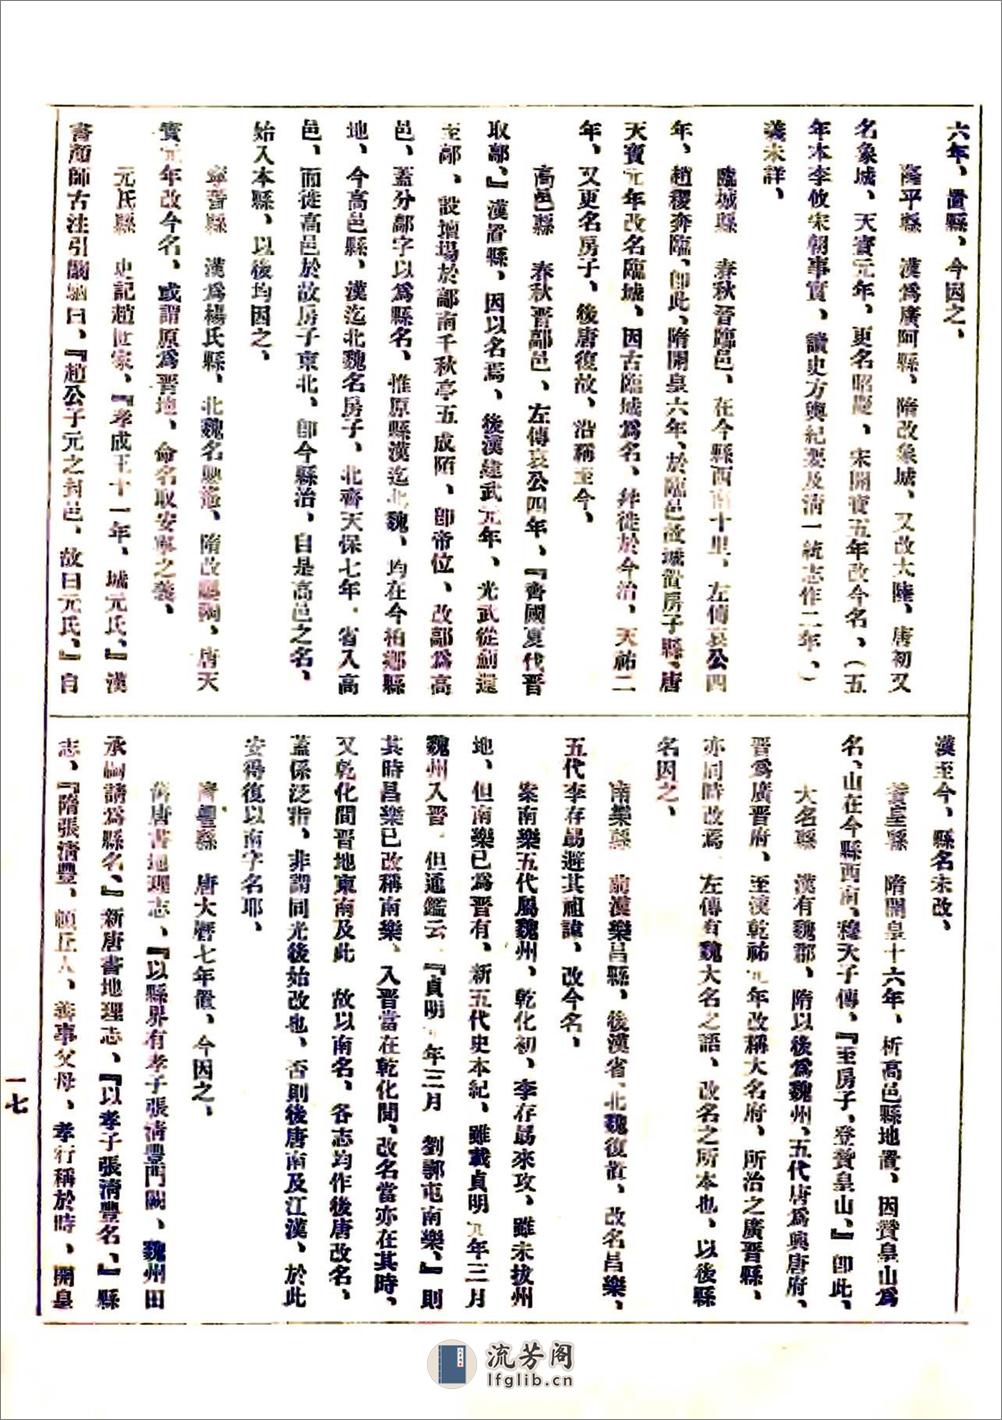 六年、置縣、今因之、
隆平縣　漢爲廣阿縣、隋改象城、又改大陸、唐初又
名象城、天寶元年、更名昭慶、宋開寶五年改今名、（五
年本李攸宋朝事實、讀史方輿紀要及清一統志作二年、）
義未詳、
臨城縣　春秋晉臨邑、在今縣西南十里、左傳哀公四
年、趙稷奔臨、卽此、隋開皇六年、於臨邑故城置房子縣、唐
天寶元年改名臨城、因古臨城爲名、幷徙於今治、天祐二
年、又更名房子、後唐復故、沿稱至今、
高邑縣　春秋晉鄗邑、左傳哀公四年、『齊國夏伐晉
取鄗、』漢置縣、因以名焉、後漢建武元年、光武從薊還
至鄗、設壇場於鄗南千秋亭五成陌、卽帝位、改鄗爲高
邑、蓋分鄗字以爲縣名、惟原縣漢迄北魏、均在今柏鄉縣
地、今高邑縣、漢迄北魏名房子、北齊天保七年、省入高
邑、而徙高邑於故房子東北、卽今縣治、自是高邑之名、
始入本縣、以後均因之、
寧晉縣　漢爲楊氏縣、北魏名癭遙、隋改癭陶、唐天
寶元年改今名、或謂原爲晉地、命名取安寧之義、
元氏縣　史記趙世家、『孝成王十一年、城元氏、』漢
書顏師古注引闞駰曰、『趙公子元之封邑、故曰元氏、』自
漢至今、縣名未改、
贊皇縣　隋開皇十六年、析高邑縣地置、因贊皇山爲
名、山在今縣西南、穆天子傳、『至房子、登贊皇山、』卽此、
大名縣　漢有魏郡、隋以後爲魏州、五代唐爲興唐府、
晉爲廣晉府、至漢乾祐元年改稱大名府、所治之廣晉縣、
亦同時改焉、左傳有魏大名之語、改名之所本也、以後縣
名因之、
南樂縣　前漢樂昌縣、後漢省、北魏復置、改名昌樂、
五代李存勗避其祖諱、改今名、
案南樂五代屬魏州、乾化初、李存勗來攻、雖未拔州
地、但南樂已爲晉有、新五代史本紀、雖載貞明元年三月
魏州入晉、但通鑑云、『貞明元年三月　劉鄩屯南樂、』則
其時昌樂已改稱南樂、入晉當在乾化間、改名當亦在其時、
又乾化間晉地東南及此　故以南名、各志均作後唐改名、
蓋係泛指、非謂同光後始改也、否則後唐南及江漢、於此
安得復以南字名耶、
清豐縣　唐大曆七年置、今因之、
舊唐書地理志、『以縣界有孝子張清豐門闕、魏州田
承嗣請爲縣名、』新唐書地理志、『以孝子張清豐名、』縣
志、『隋張清豐、頓丘人、善事父母、孝行稱於時、開皇
一七
流芳阁
lfglib.cn